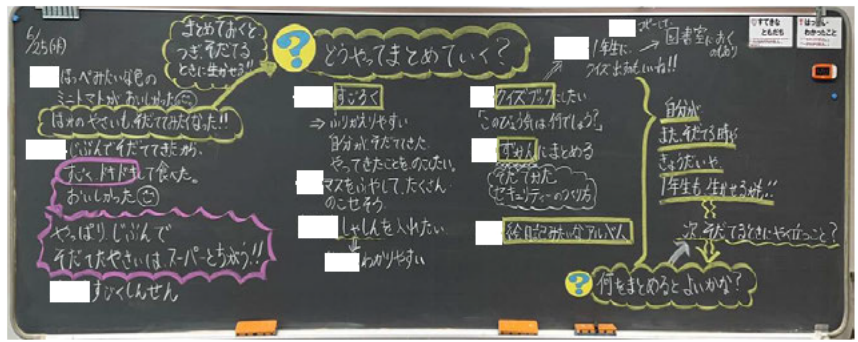 6/25(水)
まとめておくと、
つぎ、そだてる
ときに生かせる!!
ほっぺみたいな色の
ミニトマトがおいしかった
ほかのやさいもそだててみたくなった!!
じぶんでそだててきたから、
すごくドキドキして食べた。
おいしかった
やっぱりじぶんで
そだてたやさいは、スーパーとちがう!!
すごくしんせん
? どうやってまとめていく?
すごろく
⇒ふりかえりやすい
自分がそだててきた、
やってきたことをのこしたい。
マスをふやして、たくさん
のこせそう
しゃしんを入れたい
わかりやすい
クイズブックにしたい
「このひょう気は何でしょう?」
ずかんにまとめる
そだてかた
セキュリティーのつくり方
絵日記みたいなアルバム
1年生に、
クイズ出すのもいいね!!
コピーして、
→図書室におく
のもあり
すてきな
ともだち
はっけん・
わかったこと
自分が
また、そだてる時や
きょうだいや、
1年生も生かせるかも!!
次、そだてるときにやく立つこと?
? 何をまとめるとよいかな?